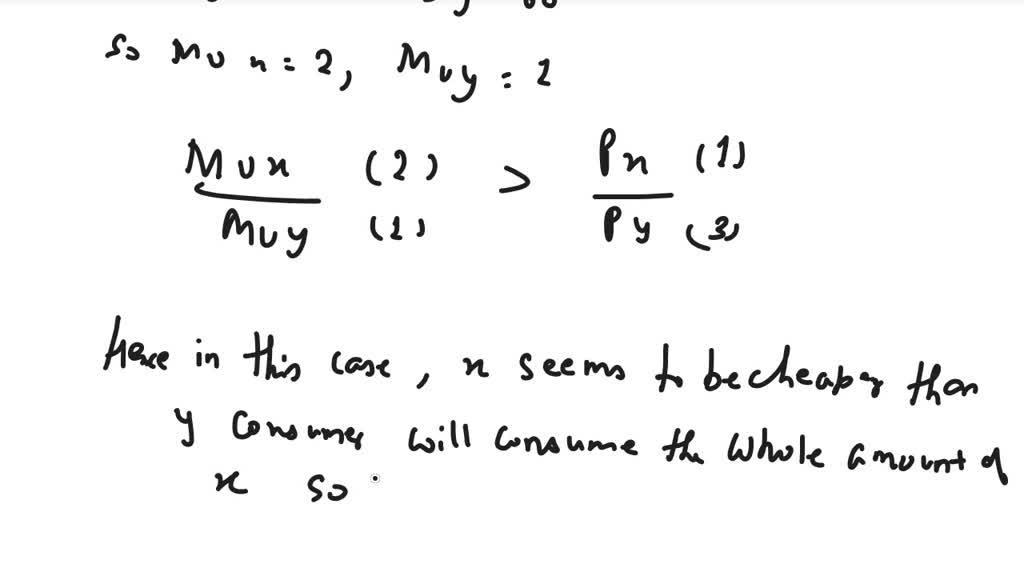 so Mux = 2, Muy = 1
Mux (2) > Px (1)
Muy (1) Py (3)
here in this case, x seems to be cheaper than
y consumer will consume the whole amount of
x so